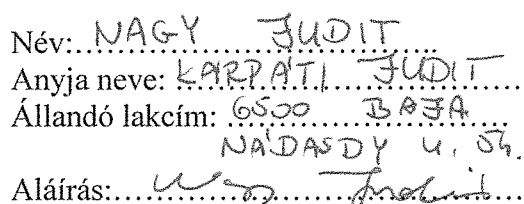 Név: NAGY JUDIT
Anyja neve: KÁRPÁTI JUDIT
Állandó lakcím: 6500 BAJA
NÁDASDY U. 5/1.
Aláírás: Nagy Judit